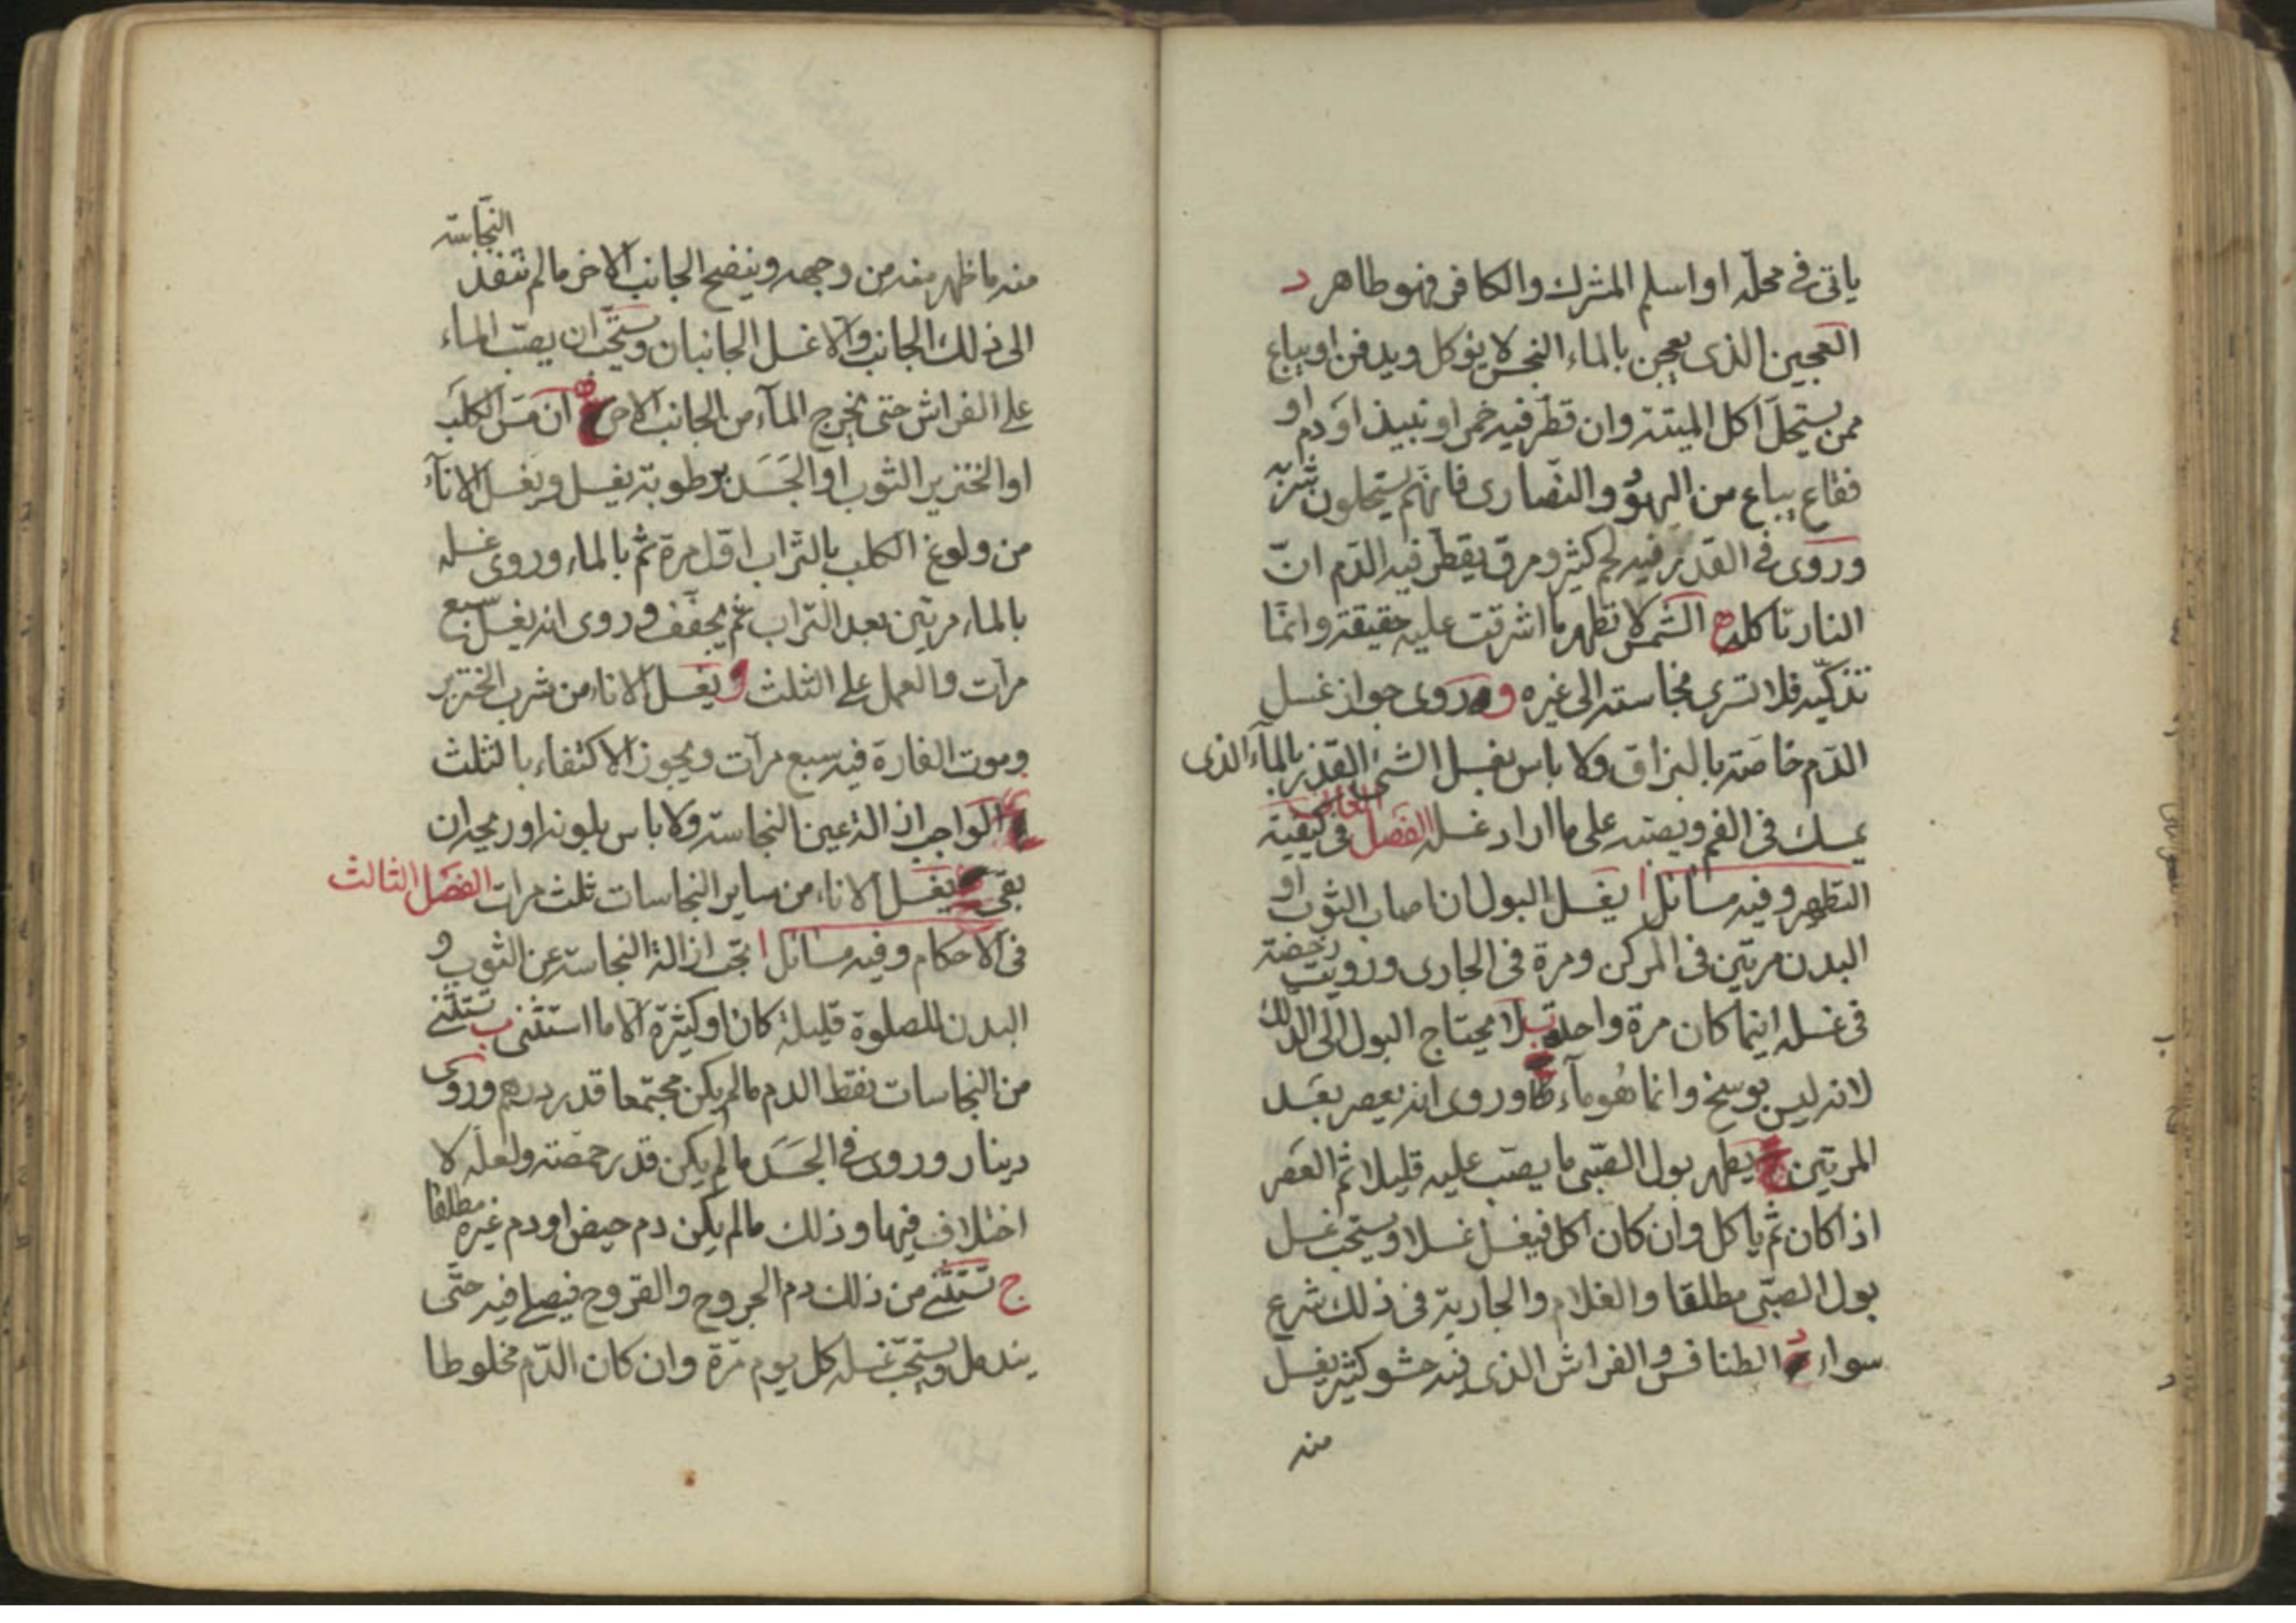 ياتى فى محلّه او اسلم المشرك والكافر فهو طاهر د
العجين الذى يعجن بالماء النجس لا يؤكل ويدفن او يباع
ممن يستحلّ اكل الميتة وان قطر فيه خمر او نبيذ او دم او
فقاع يباع من اليهود والنصارى فانهم يستحلون شربه
وروى فى القدر فيه لحم كثير ومرق يقطر فيه الدّم انّ
النار تاكله ه الشمس لا تطهر ما اشرقت عليه حقيقة وانّما
تذكّيه فلا تسرى نجاسته الى غيره و وروى جواز غسل
الدّم خاصّة بالبزاق ولا باس بغسل الشئ القذر بالمآء الذى
يمسك فى الفم ويصبّه على ما اراد غسله الفصل الثانى فى كيفيّة
التطهير وفيه مسائل ا يغسل البول ان اصاب الثوب او
البدن مرتين فى المركن ومرة فى الجارى ورويت رخصة
فى غسله اينما كان مرة واحدة ب لا يحتاج البول الى الدلك
لانه ليس بوسخ وانما هو مآء وروى انه يعصر بعد
المرتين ج يطهر بول الصّبى ما يصبّ عليه قليلا ثم العصر
اذا كان ثم ياكل وان كان اكل فيغسل غسلا ويستحبّ غسل
بول الصبّى مطلقا والغلام والجارية فى ذلك شرع
سواء د الطنافس والفراش الذى فيه حشو كثير يغسل
منه
النّجاسة
منه ما ظهر منه من وجهه وينضح الجانب الاخر ما لم تنفذ
الى ذلك الجانب والّا غسل الجانبان ويستحبّ ان يصبّ الماء
على الفراش حتى يخرج المآء من الجانب الاخر ه ان مسّ الكلب
او الخنزير الثوب او الجسد برطوبة يغسل ويغسل الانآء
من ولوغ الكلب بالتراب اوّل مرة ثم بالماء وروى غسله
بالماء مرتين بعد التراب ثم يجفّف وروى انه يغسل سبع
مرّات والعمل على الثلث و يغسل الاناء من شرب الخنزير
وموت الفارة فيه سبع مرآت ويجوز الاكتفاء بالثلث
الواجب ازالة عين النجاسة ولا باس بلونه او ريحه ان
بقى يغسل الاناء من ساير النجاسات ثلث مرات الفصل الثالث
فى الاحكام وفيه مسائل ا تجب ازالة النجاسة عن الثوب و
البدن للصلوة قليلة كان او كثيرة الّا ما استثنى ب تستثنى
من النجاسات نقط الدم ما لم يكن مجتمعا قدر درهم وروى
دينار وروى فى الجسد ما لم يكن قدر حمّصة ولعلّه لا
اختلاف فيها وذلك ما لم يكن دم حيض او دم غيره مطلقا
ج تستثنى من ذلك دم الجروح والقروح فيصلى فيه حتّى
يندمل ويستحبّ غسله كل يوم مرّة وان كان الدّم مخلوطا